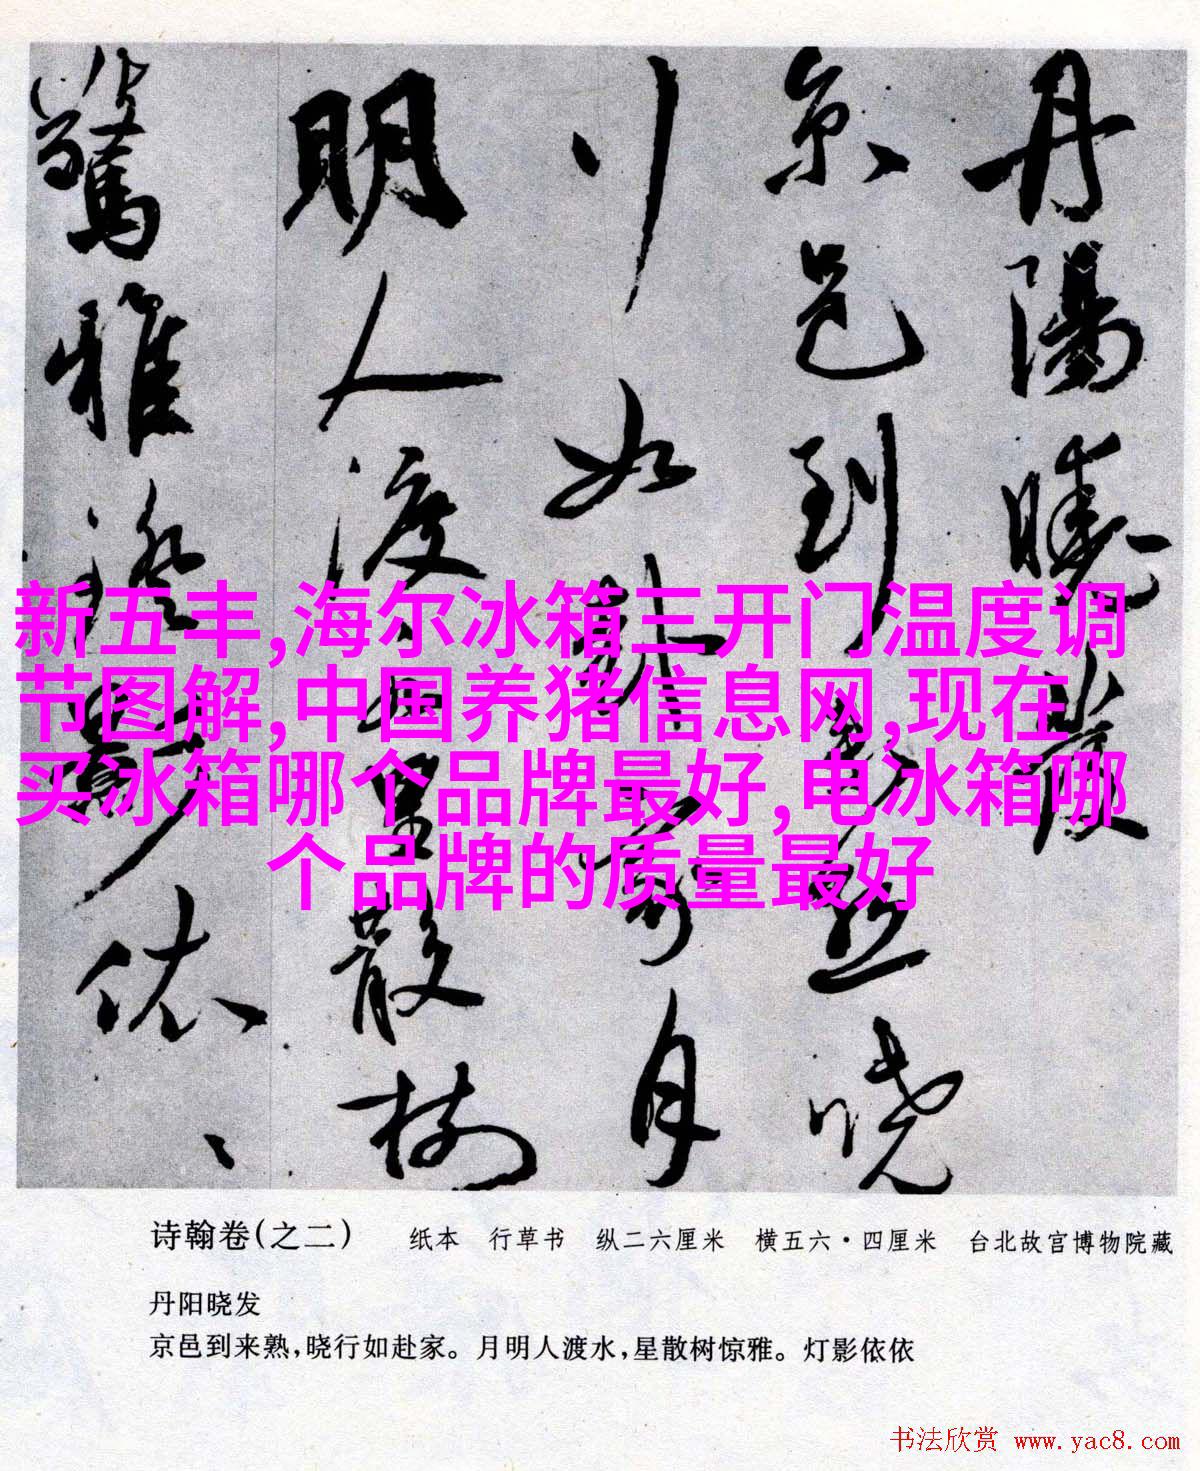 丹陽曉發
京邑到来熟曉
行如赴家月
明人渡水星散樹
驚雅燈影依、、
新五丰,海尔冰箱三开门温度调
节图解,中国养猪信息网,现在
买冰箱哪个品牌最好,电冰箱哪
个品牌的质量最好
诗翰卷(之二) 纸本 行草书 纵二六厘米 横五六·四厘米 台北故宫博物院藏
丹阳晓发
京邑到来熟,晓行如赴家。月明人渡水,星散树惊雅。灯影依依
书法欣赏 www.yac8.com